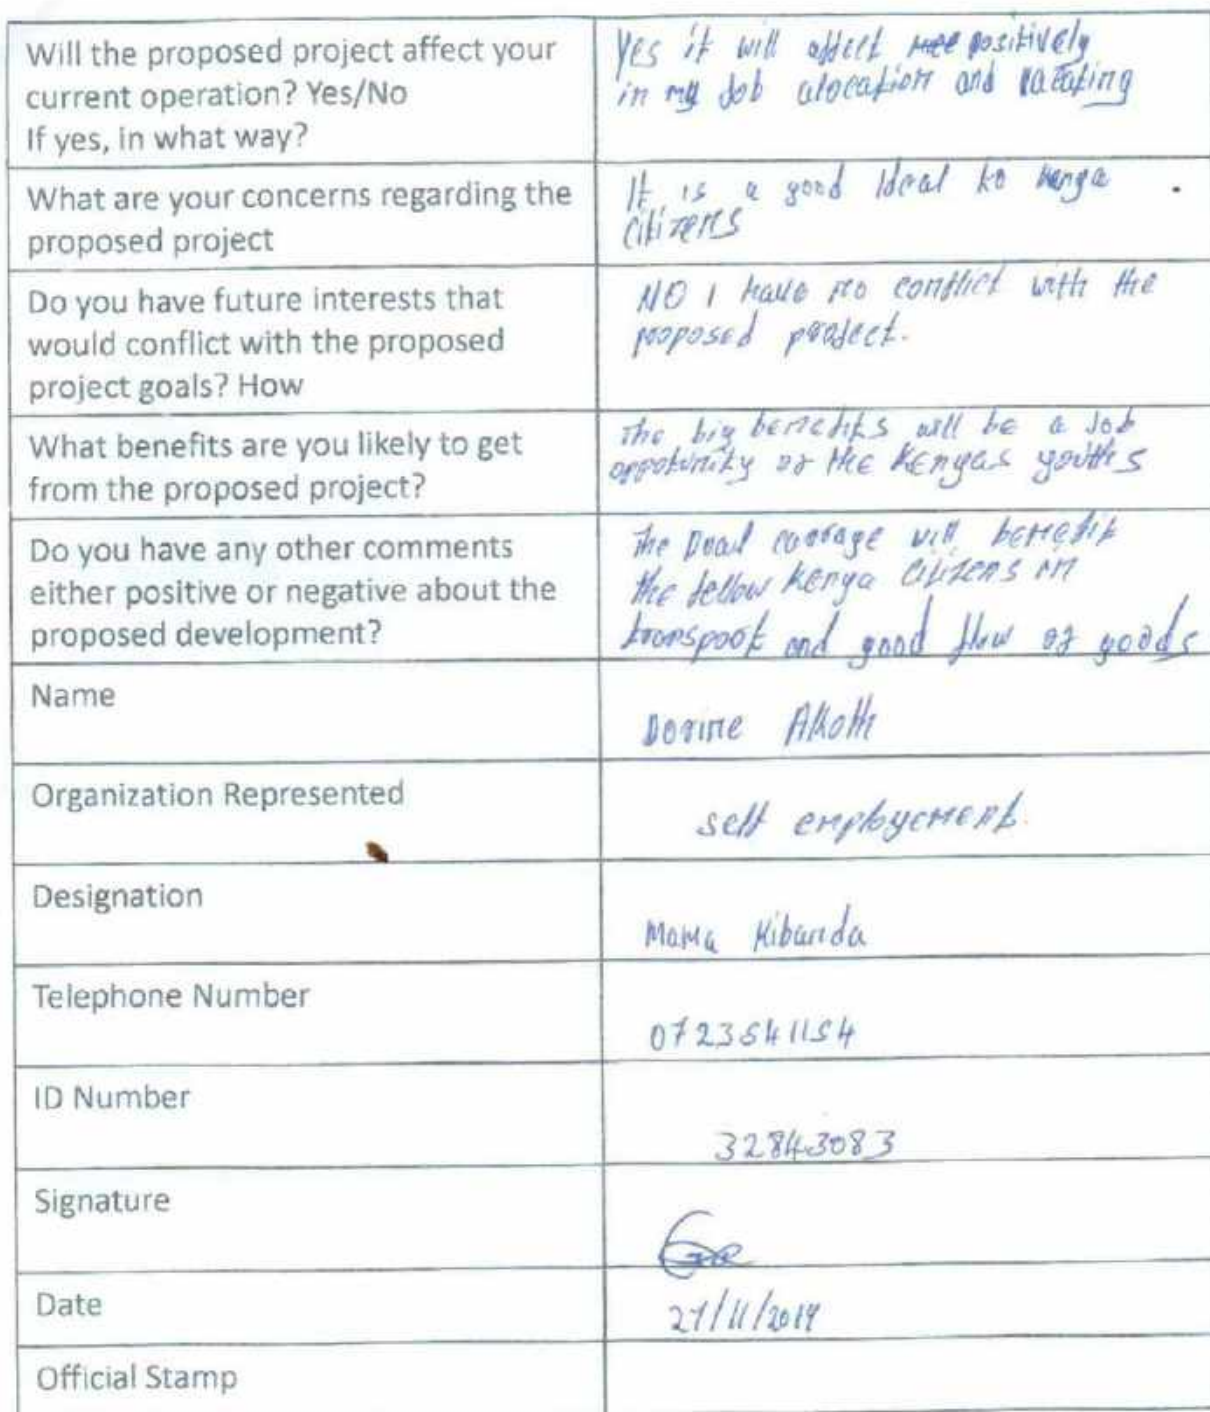 Will the proposed project affect your
current operation? Yes/No
If yes, in what way?
Yes it will affect positively
in my Job alocation and
What are your concerns regarding the
proposed project
It is a good Ideal to kenya
citizens
Do you have future interests that
would conflict with the proposed
project goals? How
NO I have no conflict with the
proposed project.
What benefits are you likely to get
from the proposed project?
The big benefits will be a Job
oppotunity of the Kenyas youths
Do you have any other comments
either positive or negative about the
proposed development?
The will benefit
the fellow kenya citizens in
transpoot and good flow of goods
Name
Dorine Akoth
Organization Represented
self employement.
Designation
Mama Kibanda
Telephone Number
0723541154
ID Number
32843083
Signature
Date
Official Stamp